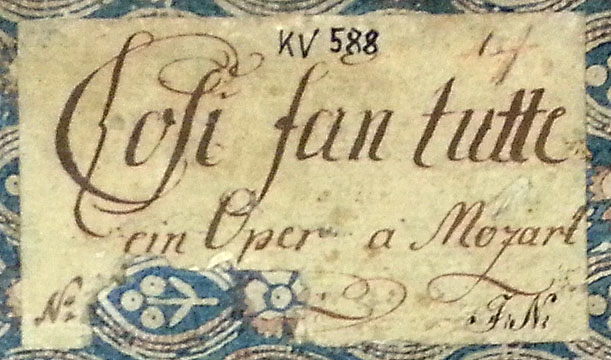 KV 588
Cosi fan tutte
ein Oper a Mozart
No:
F. N: